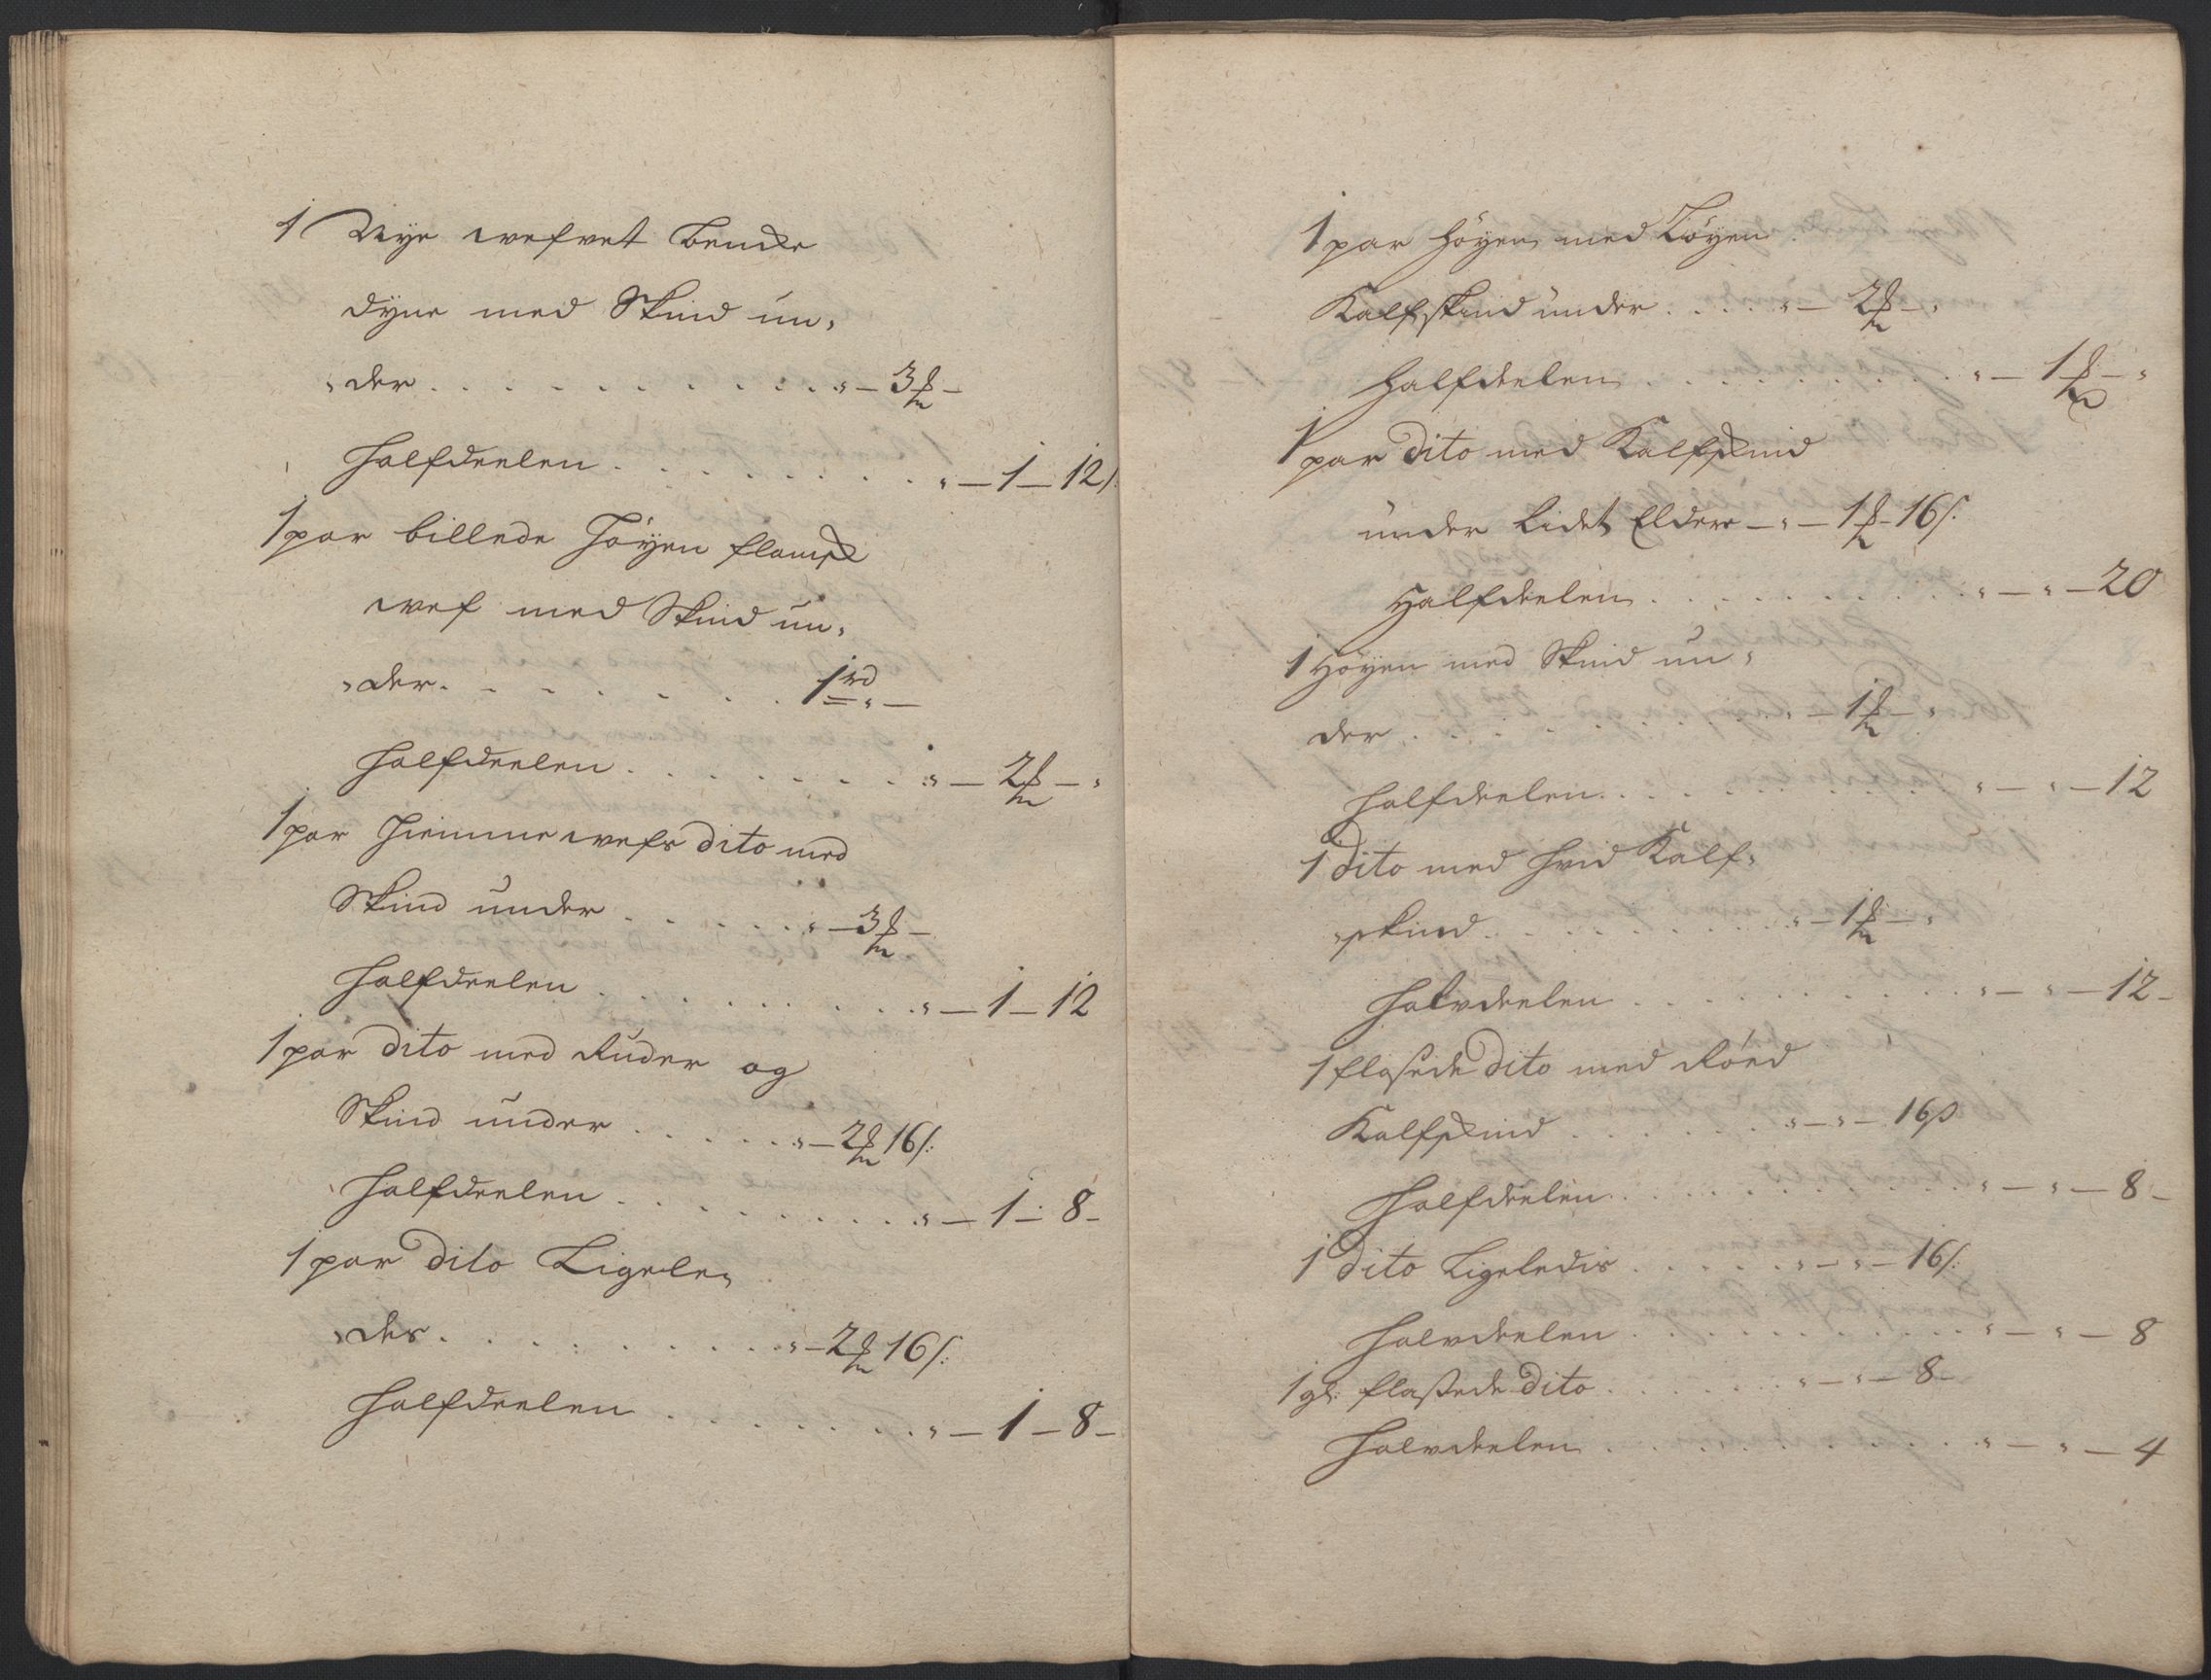 1 Nye wefvet Bencke
dyne med Skind un,
,der . . . . . . . . . . . . „ — 3 ₻ —
Halfdeelen . . . . . . . . . „ — 1 — 12 /:
1 par billede Höyen flamsk
wef med Skind un,
,der . . . . . . . . 1 rd „ —
Halfdeelen . . . . . . . . . „ — 2 ₻ — „
1 par Hiemme wefv dito med
Skind under . . . . . . „ — 3 ₻ —
Halfdeelen . . . . . . . . . . „ — 1 — 12
1 par dito med Ruder og
Skind under . . . . . . „ — 2 ₻ 16 /:
Halfdeelen . . . . . . . . . . „ — 1 — 8 —
1 par dito Ligele,
,des . . . . . . . . . „ — 2 ₻ 16 /:
Halfdeelen . . . . . . . . „ — 1 — 8 —
1 par Höyen med
Kalfskind under . . . . „ — 2 ₻ — „
Halfdeelen . . . . . . . . . . „ — 1 ₻ — „
1 par dito med Kalfskind
under Lidet Eldere — „ — 1 ₻ 16 /:
Halfdeelen . . . . . . . . . . „ — „ — 20
1 Höyen med Skind un,
der . . . . . . . . . „ — 1 ₻ — „
Halfdeelen . . . . . . . . . . „ — „ — 12
1 dito med hvid Kalf,
,skind . . . . . . . . . „ — 1 ₻ — „
Halvdeelen . . . . . . . . . . „ — „ — 12 —
1 flaßede dito med Röed
Kalfskind . . . . . . . „ — „ — 16 ß
Halfdeelen . . . . . . . . . . „ — „ — 8 —
1 dito Ligeledes . . . . . „ — „ — 16 /:
Halvdeelen . . . . . . . . . . „ — „ — 8
1 gl: flaßede dito . . . . . . „ — „ — 8 —
Halvdeelen . . . . . . . . . . „ — „ — 4